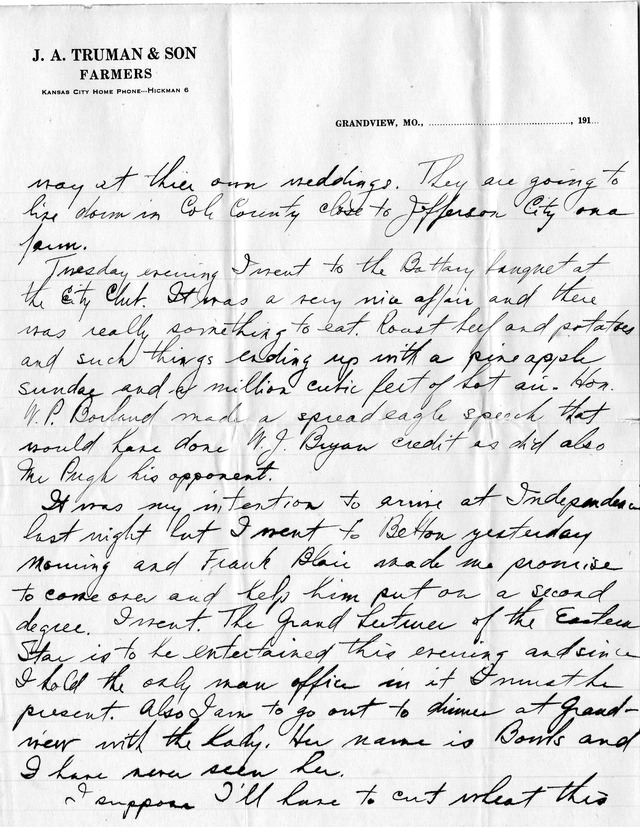 J. A. TRUMAN & SON
FARMERS
KANSAS CITY HOME PHONE---HICKMAN 6
GRANDVIEW, MO., ........................................, 191...
way at thier own weddings. They are going to
live down in Cole County close to Jefferson City on a
farm.
Tuesday evening I went to the Battery banquet at
the City Club. It was a very nice affair and there
was really something to eat. Roast beef and potatoes
and such things ending up with a pineapple
sundae and a million cubic feet of hot air. Hon.
W. P. Borland made a spread eagle speech that
would have done W. J. Bryan credit as did also
Mr Pugh his opponent.
It was my intention to arrive at Independence
last night but I went to Belton yesterday
morning and Frank Blair made me promise
to come over and help him put on a second
degree. I went. The Grand Lecturer of the Eastern
Star is to be entertained this evening and since
I hold the only man office in it I must be
present. Also I am to go out to dinner at Grand-
view with the lady. Her name is and
I have never seen her.
I suppose I'll have to cut wheat this